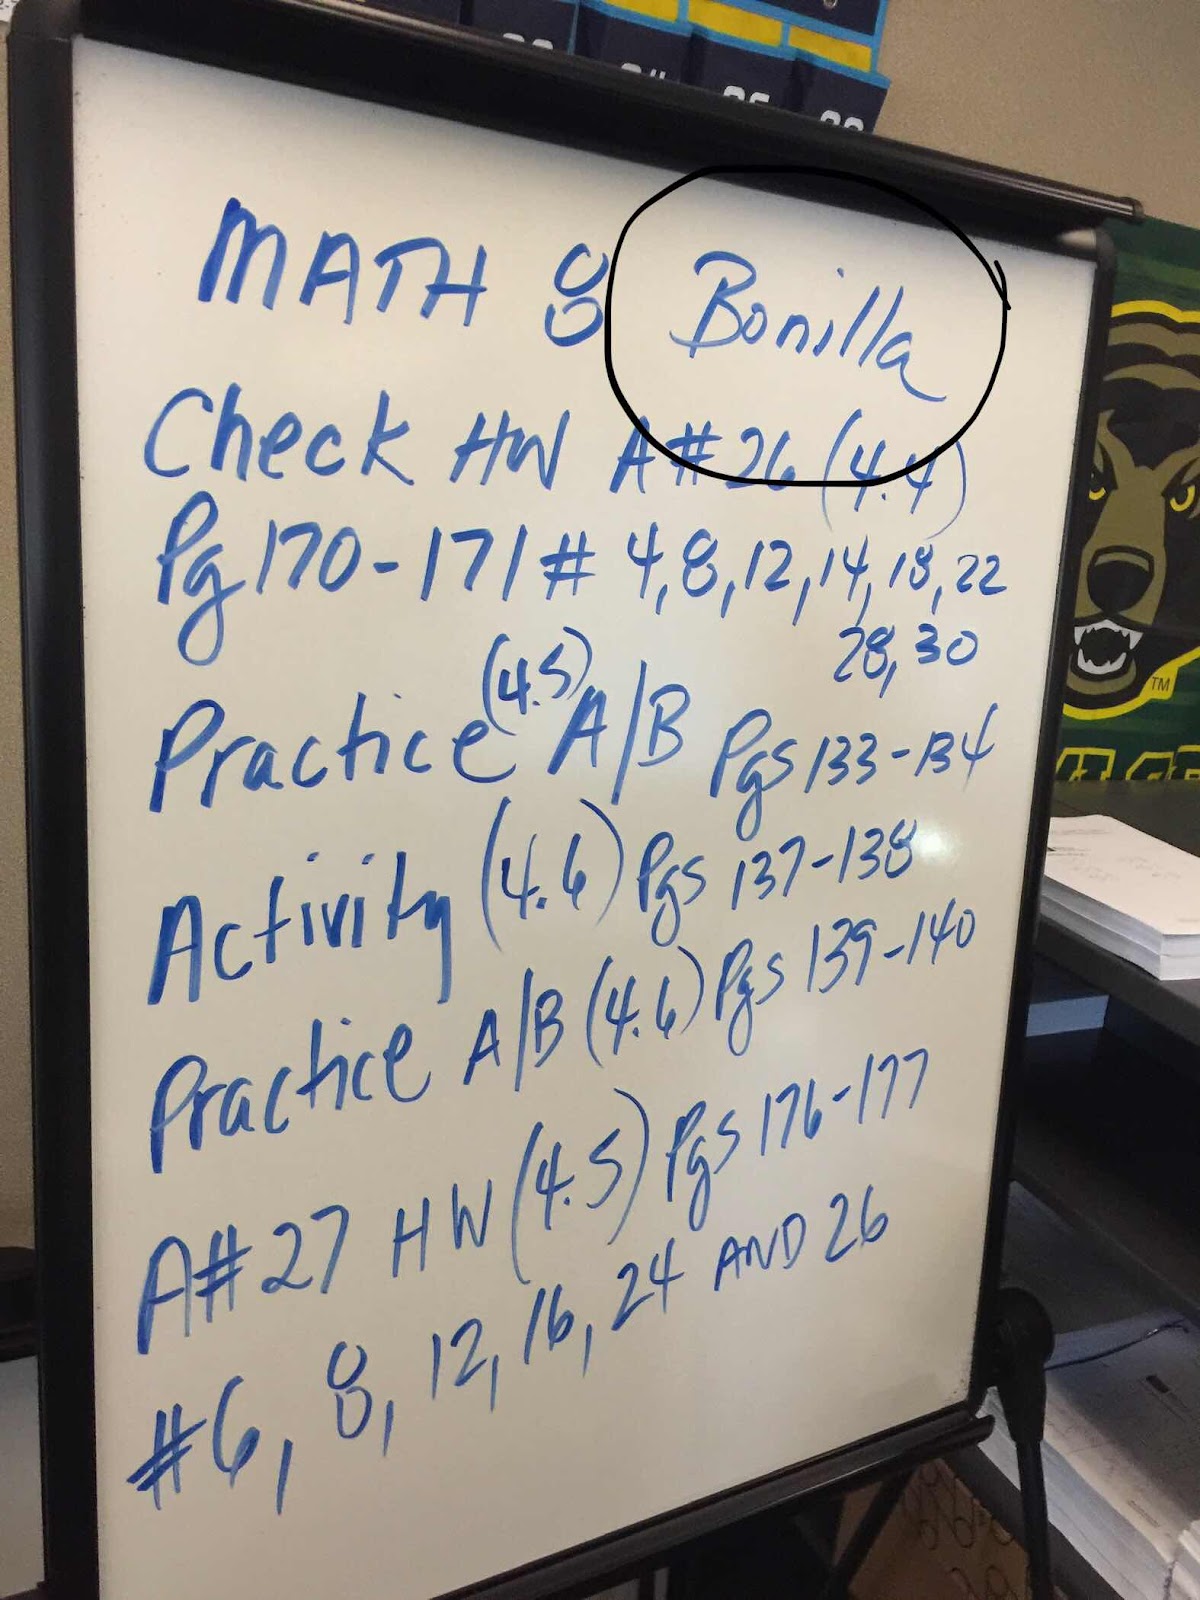 MATH 8 Bonilla
Check HW A#26 (4.4)
Pg 170-171 # 4,8,12,14,18,22
28,30
Practice (4.5) A/B Pgs 133-134
Activity (4.6) Pgs 137-138
Practice A/B (4.6) Pgs 139-140
A#27 HW (4.5) Pgs 176-177
#6, 8, 12, 16, 24 AND 26
TM